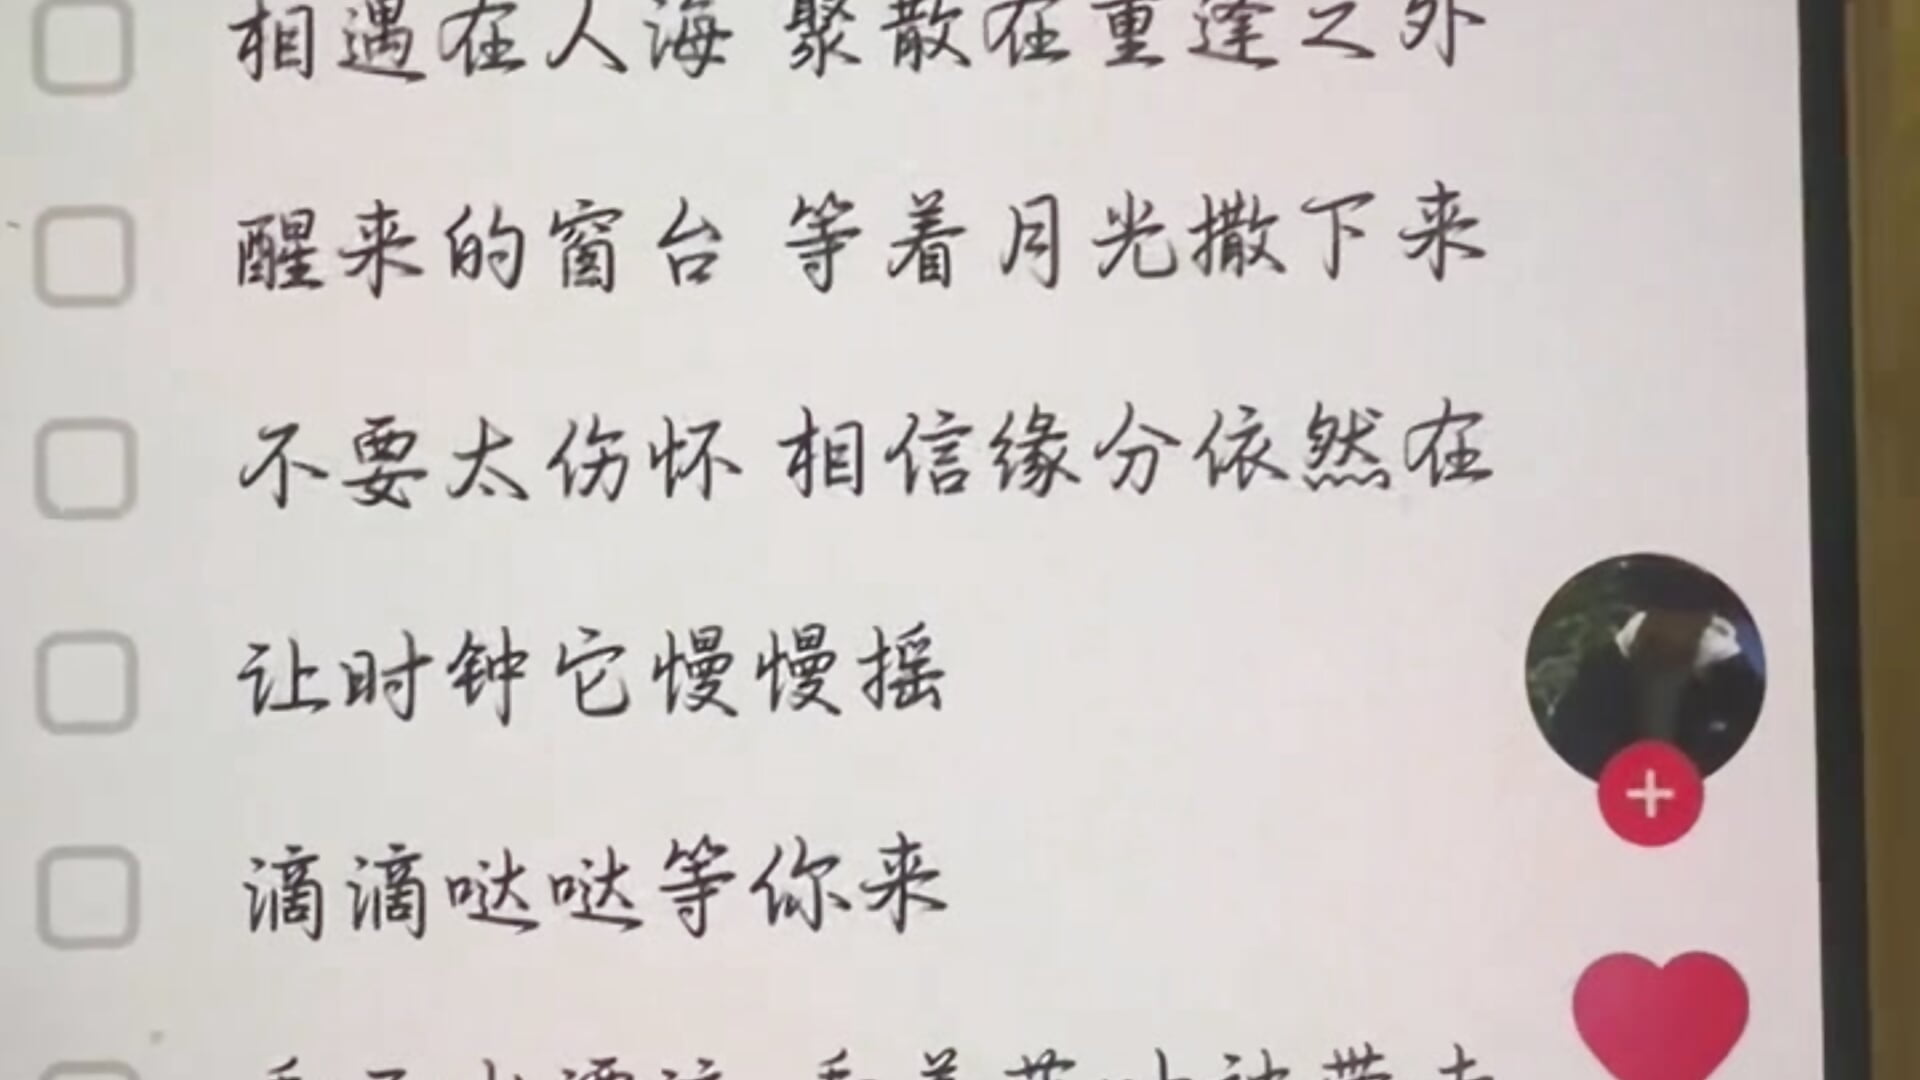 相遇在人海 聚散在重逢之外
醒来的窗台 等着月光撒下来
不要太伤怀 相信缘分依然在
让时钟它慢慢摇
滴滴哒哒等你来